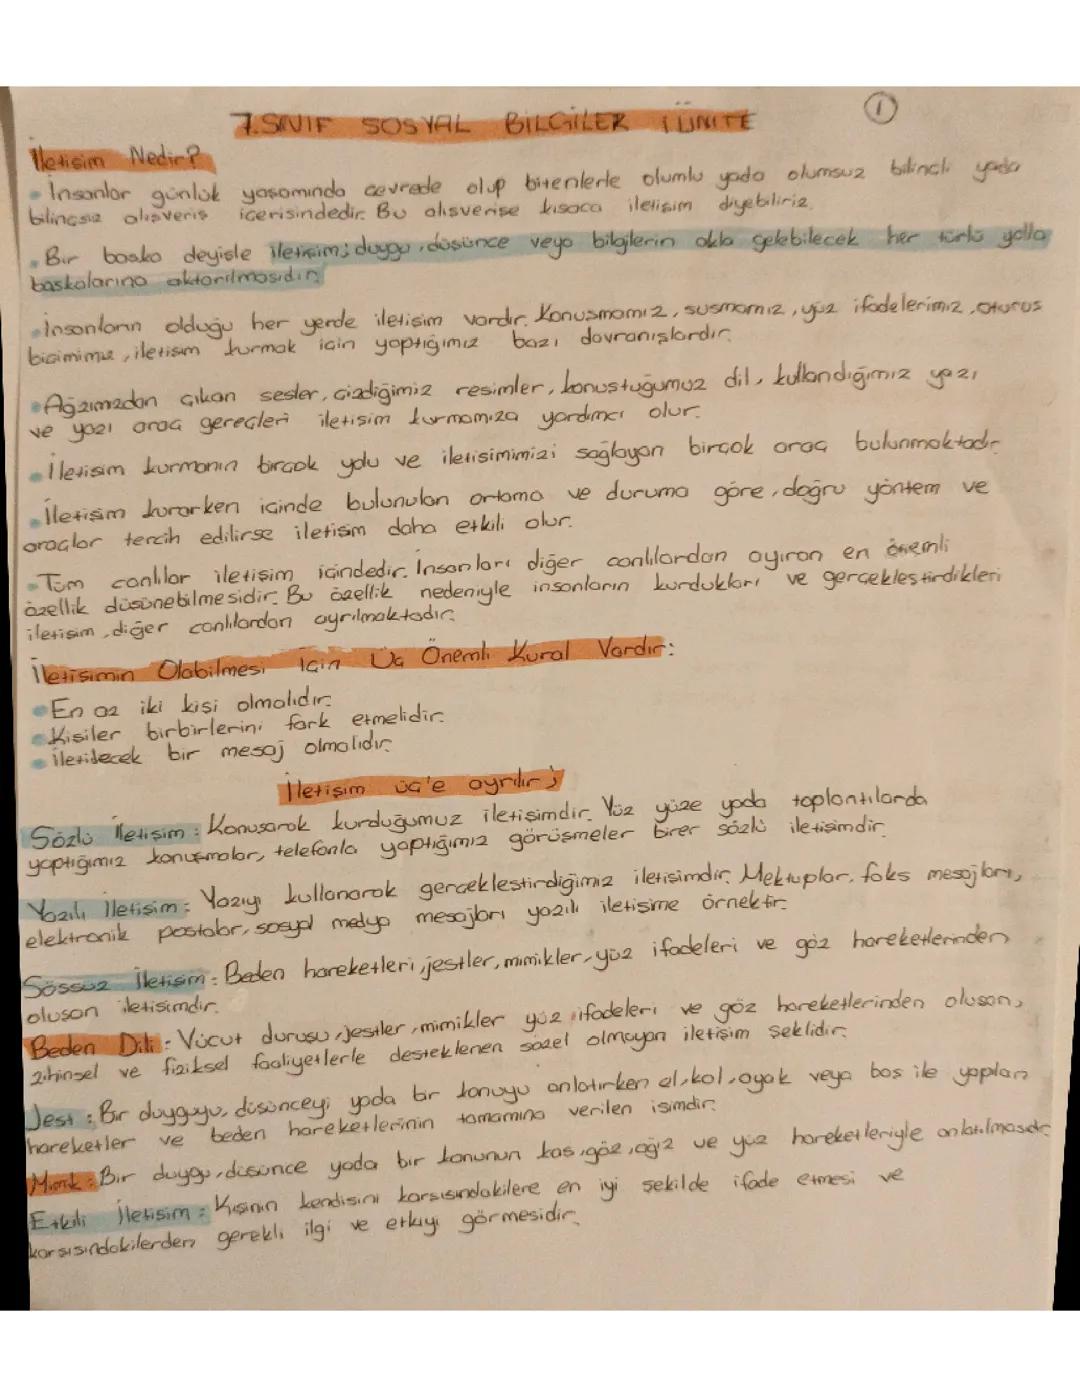 7.SINIF SOSYAL BİLGİLER 1 ÜNİTE
1
İletişim Nedir?
• İnsanlar günlük yaşamında çevrede olup bitenlerle olumlu yada olumsuz bilinçli yada
bilinçsiz alışveriş içerisindedir. Bu alışverişe kısaca iletişim diyebiliriz.
• Bir başka deyişle iletişim; duygu, düşünce veya bilgilerin akla gelebilecek her türlü yolla
başkalarına aktarılmasıdır.
• İnsanların olduğu her yerde iletişim vardır. Konuşmamız, susmamız, yüz ifadelerimiz, oturuş
biçimimiz, iletişim kurmak için yaptığımız bazı davranışlardır.
• Ağzımızdan çıkan sesler, çizdiğimiz resimler, konuştuğumuz dil, kullandığımız yazı
ve yazı araç gereçleri iletişim kurmamıza yardımcı olur.
• İletişim kurmanın birçok yolu ve iletişimimizi sağlayan birçok araç bulunmaktadır.
• İletişim kurarken içinde bulunulan ortama ve duruma göre, doğru yöntem ve
araçlar tercih edilirse iletişim daha etkili olur.
• Tüm canlılar iletişim içindedir. İnsanları diğer canlılardan ayıran en önemli
özellik düşünebilmesidir. Bu özellik nedeniyle insanların kurdukları ve gerçekleştirdikleri
iletişim, diğer canlılardan ayrılmaktadır.
İletişimin Olabilmesi İçin Üç Önemli Kural Vardır:
• En az iki kişi olmalıdır.
• Kişiler birbirlerini fark etmelidir.
• İletilecek bir mesaj olmalıdır.
İletişim üç'e ayrılır;
Sözlü İletişim: Konuşarak kurduğumuz iletişimdir. Yüz yüze yada toplantılarda
yaptığımız konuşmalar, telefonla yaptığımız görüşmeler birer sözlü iletişimdir.
Yazılı İletişim: Yazıyı kullanarak gerçekleştirdiğimiz iletişimdir. Mektuplar, faks mesajları,
elektronik postalar, sosyal medya mesajları yazılı iletişime örnektir.
Sössüz İletişim: Beden hareketleri, jestler, mimikler, yüz ifadeleri ve göz hareketlerinden
oluşan iletişimdir.
Beden Dili: Vücut duruşu, jestler, mimikler yüz ifadeleri ve göz hareketlerinden oluşan,
zihinsel ve fiziksel faaliyetlerle desteklenen sözel olmayan iletişim şeklidir.
Jest: Bir duyguyu, düşünceyi yada bir konuyu anlatırken el, kol, ayak veya baş ile yapılan
hareketler ve beden hareketlerinin tamamına verilen isimdir.
Mimik: Bir duygu, düşünce yada bir konunun kaş, göz, ağız ve yüz hareketleriyle anlatılmasıdır.
Etkili İletişim: Kişinin kendisini karşısındakilere en iyi şekilde ifade etmesi ve
karşısındakilerden gerekli ilgi ve etkiyi görmesidir.